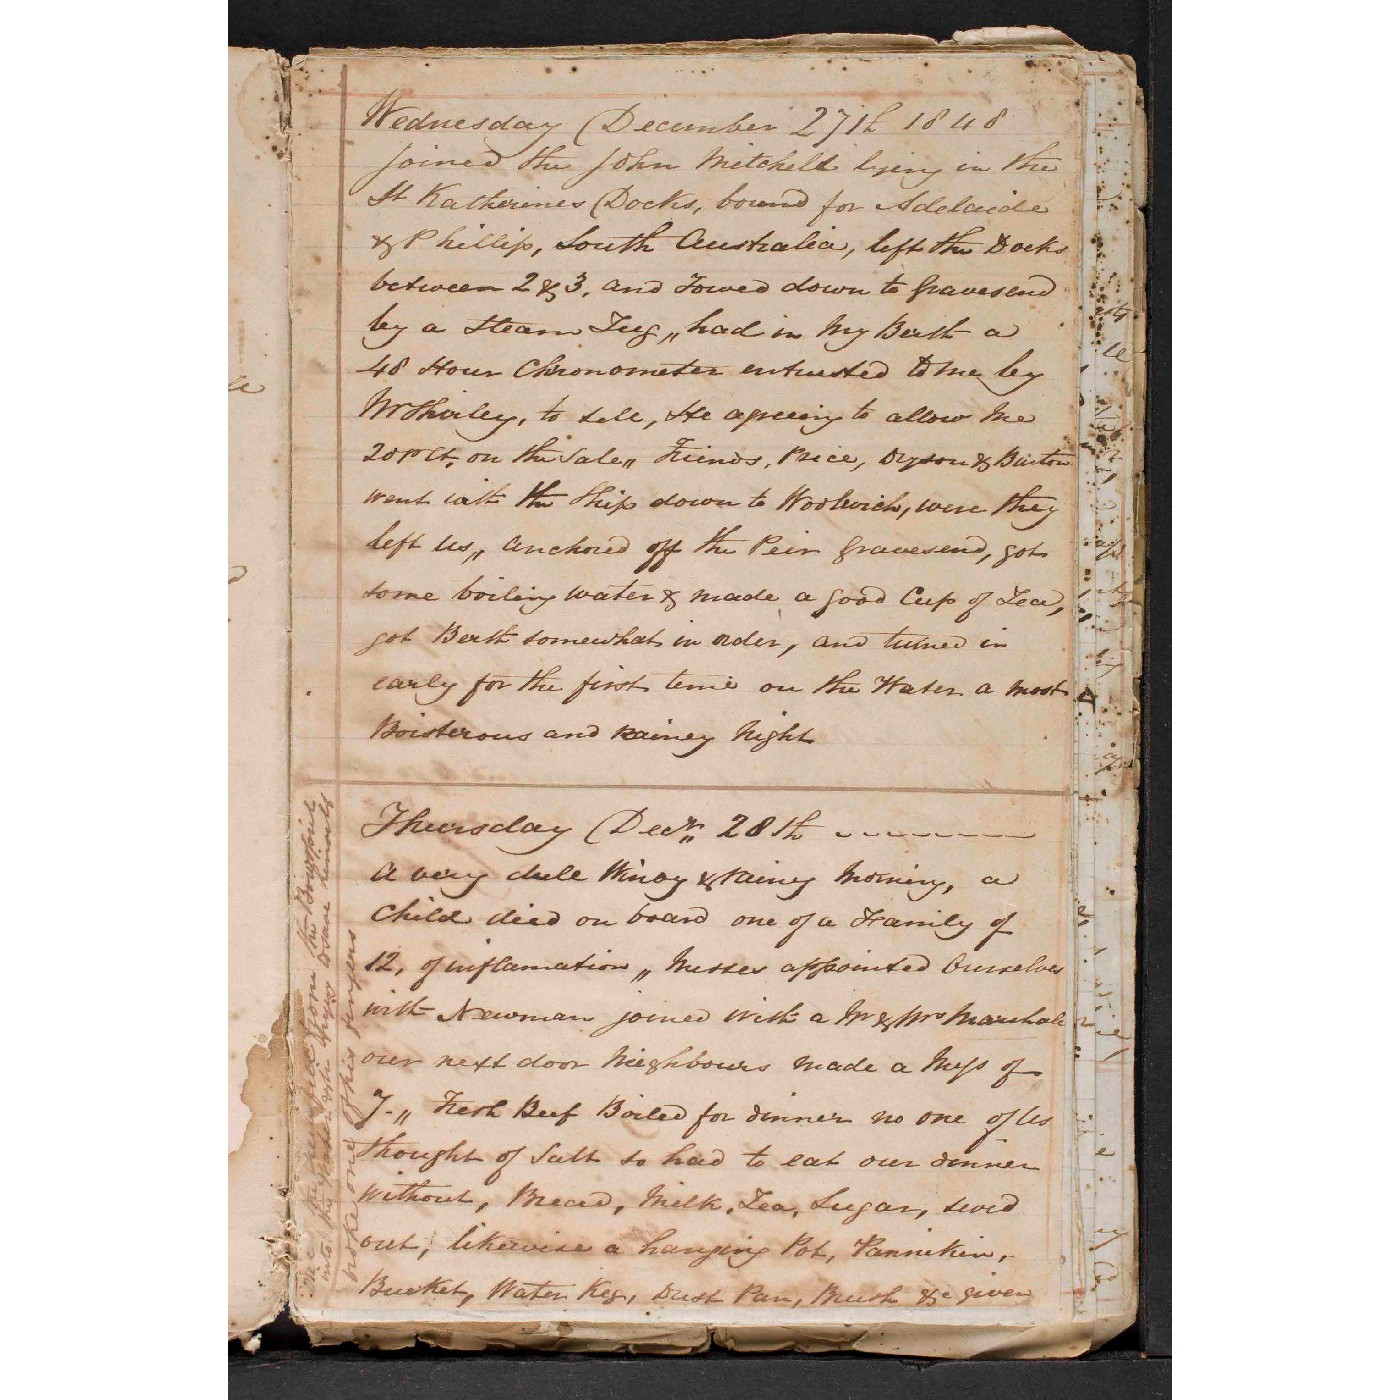 Wednesday December 27th 1848
joined the John Mitchell lying in the
St Katherines Docks, bound for Adelaide
& Phillip, South Australia, left the Docks
between 2 & 3, and Towed down to Gravesend
by a Steam Tug,, had in My Berth a
48 Hour Chronometer entrusted to me by
Mr Shirley, to sell, He agreeing to allow Me
20 pr Ct. on the Sale,, Friends, Price, Dyson & Burton
went with the Ship down to Woolwich, were they
left us,, anchored off the Peir Gravesend, got
some boiling water & made a good Cup of Tea,
got Berth somewhat in order, and turned in
early for the first time on the Water a most
Boisterous and Rainey Night
Thursday Decr,, 28th
A very dull Windy & Rainey Morning, a
Child died on board one of a Family of
12, of inflamation,, Messes appointed Ourselves
with Newman joined with a Mr & Mrs Marshall
our next door Neighbours made a Mess of
7-,, Fresh Beef Boiled for dinner no one of us
thought of Salt so had to eat our dinner
without, Bread, Milk, Tea, Sugar, serv'd
out, likewise a hanging Pot, Pannikin,
Bucket, Water Keg, Dust Pan, Brush &c given
fell from the Bowsprit
into the Water
broke one of his fingers